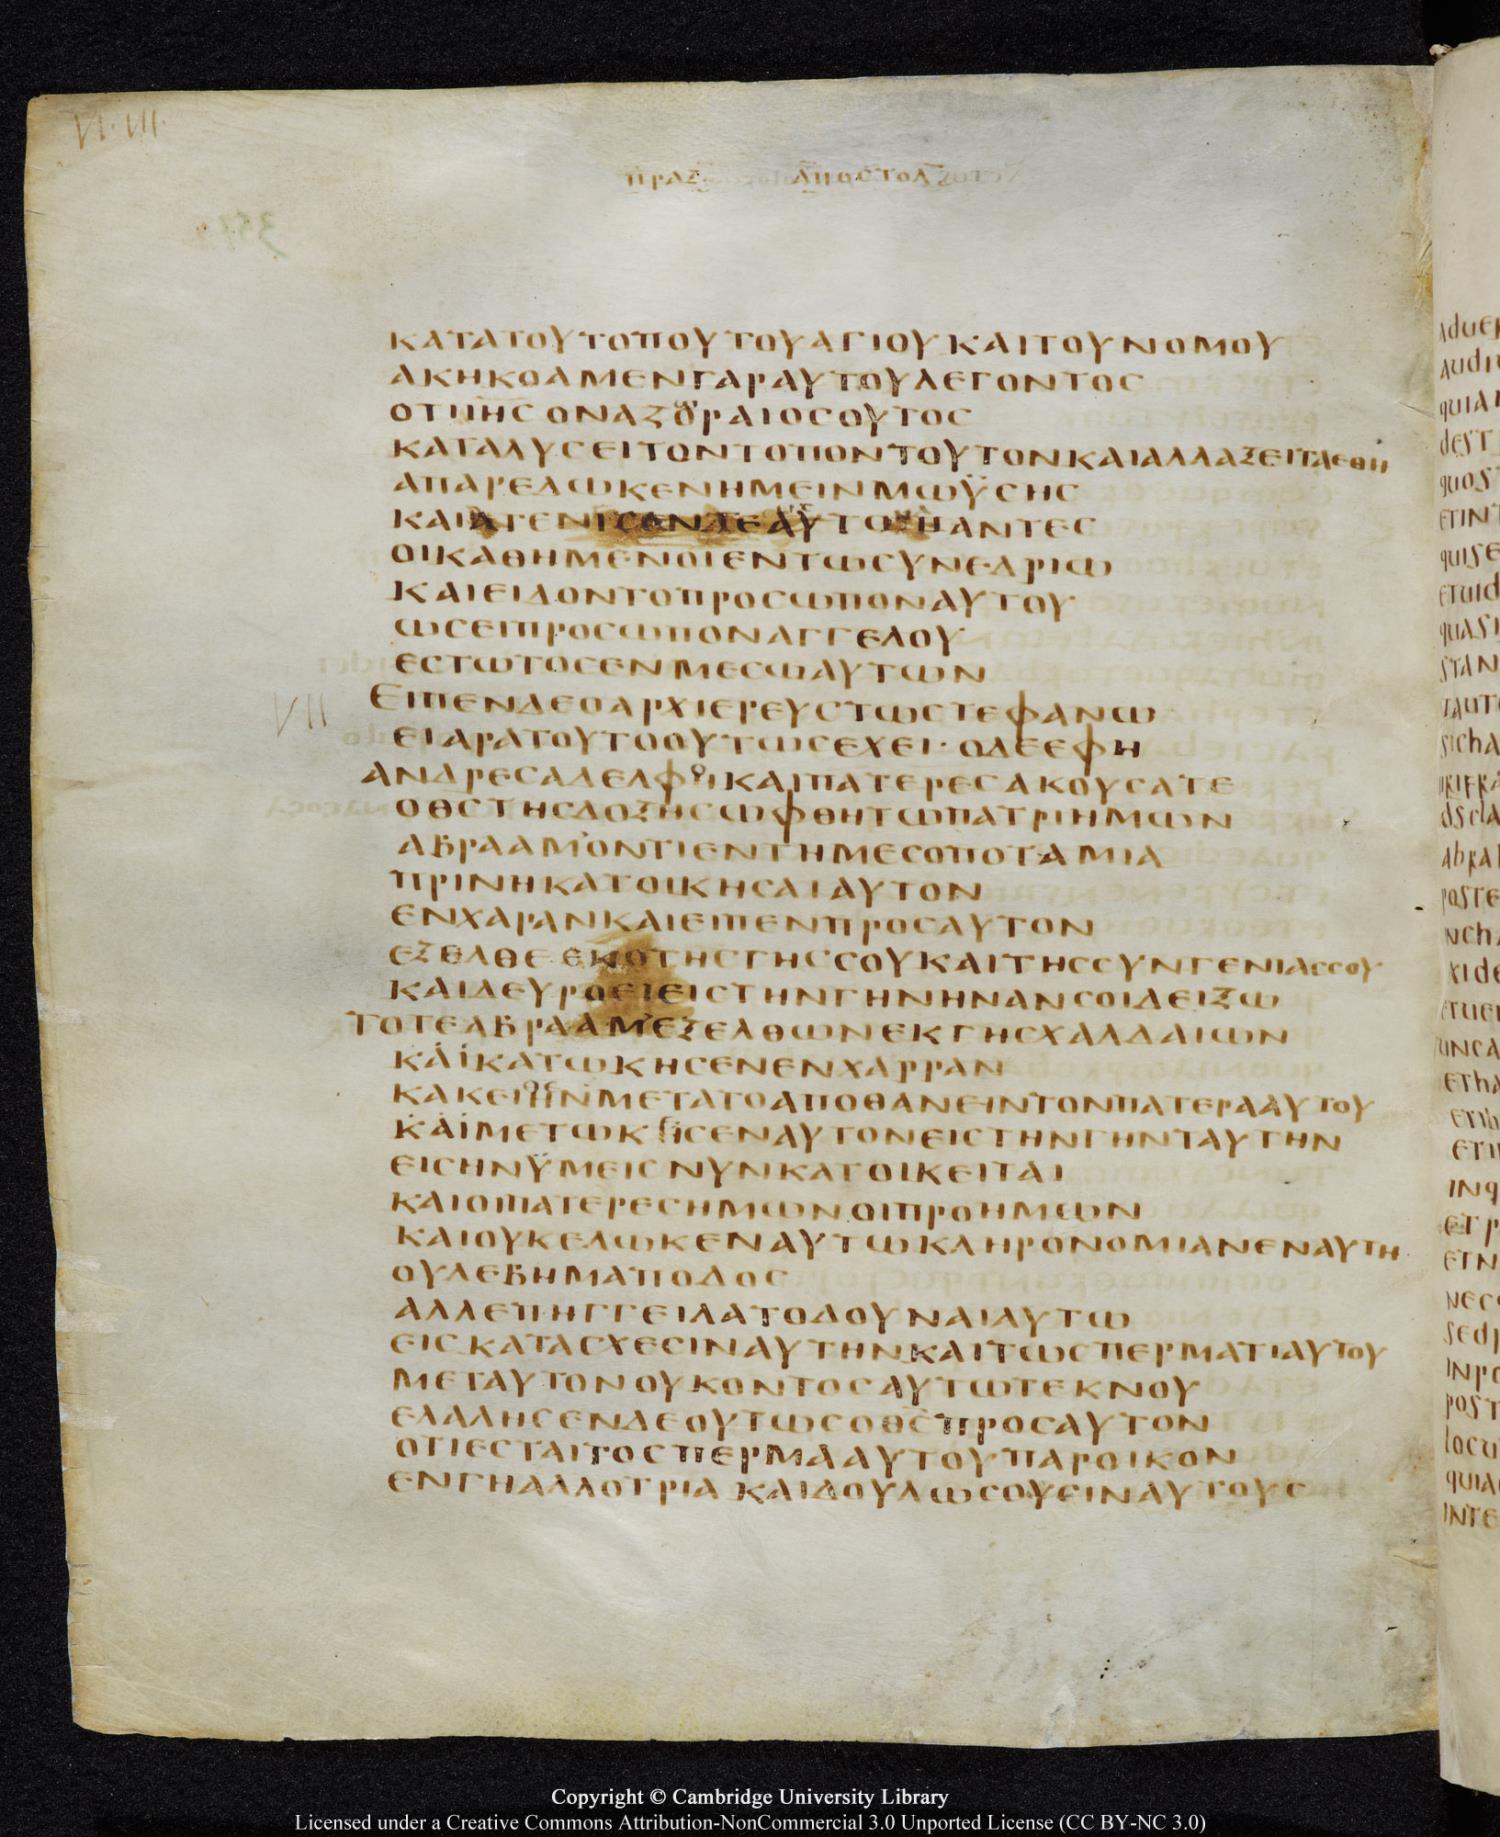 VI·III·
ΠΡΑΞ ΑΠΟΣΤΟΛ
ΚΑΤΑΤΟΥΤΟΠΟΥΤΟΥΑΓΙΟΥΚΑΙΤΟΥΝΟΜΟΥ
ΑΚΗΚΟΑΜΕΝΓΑΡΑΥΤΟΥΛΕΓΟΝΤΟΣ
ΟΤΙΙΗΣΟΝΑΖΟΡΑΙΟΣΟΥΤΟΣ
ΚΑΤΑΛΥΣΕΙΤΟΝΤΟΠΟΝΤΟΥΤΟΝΚΑΙΑΛΛΑΞΕΙΤΑΕΘΗ
ΑΠΑΡΕΔΩΚΕΝΗΜΕΙΝΜΩΫΣΗΣ
ΚΑΙΑΤΕΝΙΣΟΝΔΕΑΥΤΩΠΑΝΤΕΣ
ΟΙΚΑΘΗΜΕΝΟΙΕΝΤΩΣΥΝΕΔΡΙΩ
ΚΑΙΕΙΔΟΝΤΟΠΡΟΣΩΠΟΝΑΥΤΟΥ
ΩΣΕΙΠΡΟΣΩΠΟΝΑΓΓΕΛΟΥ
ΕΣΤΩΤΟΣΕΝΜΕΣΩΑΥΤΩΝ
VII ΕΙΠΕΝΔΕΟΑΡΧΙΕΡΕΥΣΤΩΣΤΕΦΑΝΩ
ΕΙΑΡΑΤΟΥΤΟΟΥΤΩΣΕΧΕΙ·ΟΔΕΕΦΗ
ΑΝΔΡΕΣΑΔΕΛΦΟΙΚΑΙΠΑΤΕΡΕΣΑΚΟΥΣΑΤΕ
ΟΘΣΤΗΣΔΟΞΗΣΩΦΘΗΤΩΠΑΤΡΙΗΜΩΝ
ΑΒΡΑΑΜΟΝΤΙΕΝΤΗΜΕΣΟΠΟΤΑΜΙΑ
ΠΡΙΝΗΚΑΤΟΙΚΗΣΑΙΑΥΤΟΝ
ΕΝΧΑΡΑΝΚΑΙΕΙΠΕΝΠΡΟΣΑΥΤΟΝ
ΕΞΕΛΘΕΕΚΟΤΗΣΓΗΣΣΟΥΚΑΙΤΗΣΣΥΝΓΕΝΙΑΣΣΟΥ
ΚΑΙΔΕΥΡΟΕΙΕΙΣΤΗΝΓΗΝΗΝΑΝΣΟΙΔΕΙΞΩ
ΤΟΤΕΑΒΡΑΑΜΕΞΕΛΘΩΝΕΚΓΗΣΧΑΛΔΑΙΩΝ
ΚΑΙΚΑΤΩΚΗΣΕΝΕΝΧΑΡΡΑΝ
ΚΑΚΕΙΗΝΜΕΤΑΤΟΑΠΟΘΑΝΕΙΝΤΟΝΠΑΤΕΡΑΑΥΤΟΥ
ΚΑΙΜΕΤΩΚΗΣΕΝΑΥΤΟΝΕΙΣΤΗΝΓΗΝΤΑΥΤΗΝ
ΕΙΣΗΝΫΜΕΙΣΝΥΝΚΑΤΟΙΚΕΙΤΑΙ
ΚΑΙΟΙΠΑΤΕΡΕΣΗΜΩΝΟΙΠΡΟΗΜΩΝ
ΚΑΙΟΥΚΕΔΩΚΕΝΑΥΤΩΚΛΗΡΟΝΟΜΙΑΝΕΝΑΥΤΗ
ΟΥΔΕΒΗΜΑΠΟΔΟΣ
ΑΛΛΕΠΗΓΓΕΙΛΑΤΟΔΟΥΝΑΙΑΥΤΩ
ΕΙΣΚΑΤΑΣΧΕΣΙΝΑΥΤΗΝΚΑΙΤΩΣΠΕΡΜΑΤΙΑΥΤΟΥ
ΜΕΤΑΥΤΟΝΟΥΚΟΝΤΟΣΑΥΤΩΤΕΚΝΟΥ
ΕΛΑΛΗΣΕΝΔΕΟΥΤΩΣΟΘΣΠΡΟΣΑΥΤΟΝ
ΟΤΙΕΣΤΑΙΤΟΣΠΕΡΜΑΑΥΤΟΥΠΑΡΟΙΚΟΝ
ΕΝΓΗΑΛΛΟΤΡΙΑ ΚΑΙΔΟΥΛΩΣΟΥΣΙΝΑΥΤΟΥΣ
Copyright © Cambridge University Library
Licensed under a Creative Commons Attribution-NonCommercial 3.0 Unported License (CC BY-NC 3.0)